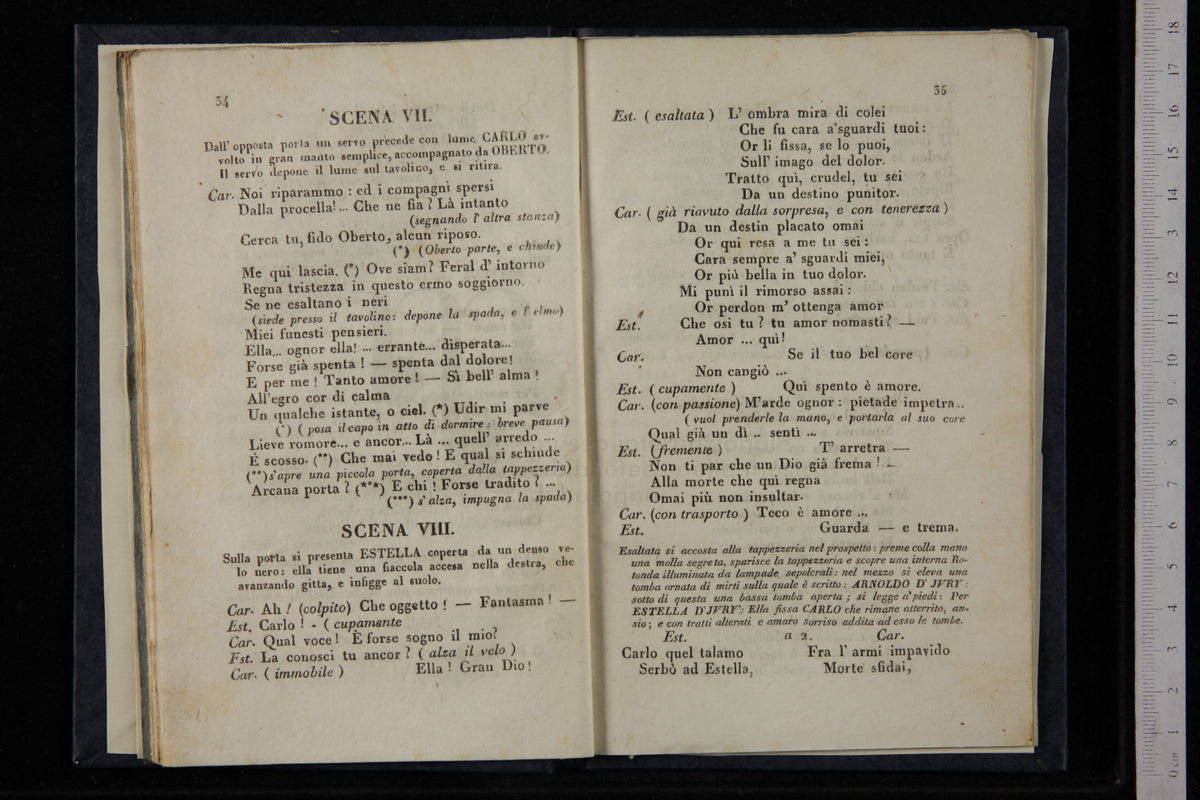 34
SCENA VII.
Dall' opposta porta un servo precede con lume CARLO av-
volto in gran manto semplice, accompagnato da OBERTO.
Il servo depone il lume sul tavolino, e si ritira.
Car. Noi riparammo : ed i compagni spersi
Dalla procella!... Che ne fia ? Là intanto
(segnando l' altra stanza)
Cerca tu, fido Oberto, alcun riposo.
(*) (Oberto parte, e chiude)
Me qui lascia. (*) Ove siam? Feral d' intorno
Regna tristezza in questo ermo soggiorno.
Se ne esaltano i neri
(siede presso il tavolino: depone la spada, e l' elmo)
Miei funesti pensieri.
Ella... ognor ella! ... errante... disperata...
Forse già spenta ! — spenta dal dolore!
E per me ! Tanto amore ! — Sì bell' alma !
All'egro cor di calma
Un qualche istante, o ciel. (*) Udir mi parve
(*) ( posa il capo in atto di dormire : breve pausa)
Lieve romore... e ancor... Là ... quell' arredo ...
È scosso. (**) Che mai vedo ! E qual si schiude
(**) s'apre una piccola porta, coperta dalla tappezzeria)
Arcana porta ? (***) E chi ! Forse tradito ? ...
(***) s' alza, impugna la spada)
SCENA VIII.
Sulla porta si presenta ESTELLA coperta da un denso ve-
lo nero: ella tiene una fiaccola accesa nella destra, che
avanzando gitta, e infigge al suolo.
Car. Ah ! (colpito) Che oggetto ! — Fantasma ! —
Est. Carlo ! - ( cupamente
Car. Qual voce ! È forse sogno il mio?
Est. La conosci tu ancor ? ( alza il velo )
Car. ( immobile ) Ella ! Gran Dio !
35
Est. ( esaltata ) L' ombra mira di colei
Che fu cara a'sguardi tuoi :
Or li fissa, se lo puoi,
Sull' imago del dolor.
Tratto quì, crudel, tu sei
Da un destino punitor.
Car. ( già riavuto dalla sorpresa, e con tenerezza )
Da un destin placato omai
Or qui resa a me tu sei :
Cara sempre a' sguardi miei,
Or più bella in tuo dolor.
Mi punì il rimorso assai :
Or perdon m' ottenga amor
Est. Che osi tu ? tu amor nomasti ? —
Amor ... quì !
Car. Se il tuo bel core
Non cangiò ...
Est. ( cupamente ) Quì spento è amore.
Car. (con passione) M'arde ognor : pietade impetra..
( vuol prenderle la mano, e portarla al suo core
Qual già un dì .. sentì ...
Est. (fremente ) T' arretra —
Non ti par che un Dio già frema ! —
Alla morte che quì regna
Omai più non insultar.
Car. (con trasporto ) Teco è amore ...
Est. Guarda — e trema.
Esaltata si accosta alla tappezzeria nel prospetto : preme colla mano
una molla segreta, sparisce la tappezzeria e scopre una interna Ro-
tonda illuminata da lampade sepolcrali : nel mezzo si eleva una
tomba ornata di mirti sulla quale è scritto : ARNOLDO D' JVRY :
sotto di questa una bassa tomba aperta ; si legge a' piedi : Per
ESTELLA D'JVRY : Ella fissa CARLO che rimane atterrito, an-
sio ; e con tratti alterati e amaro sorriso addita ad esso le tombe.
Est. a 2. Car.
Carlo quel talamo Fra l' armi impavido
Serbò ad Estella, Morte sfidai,